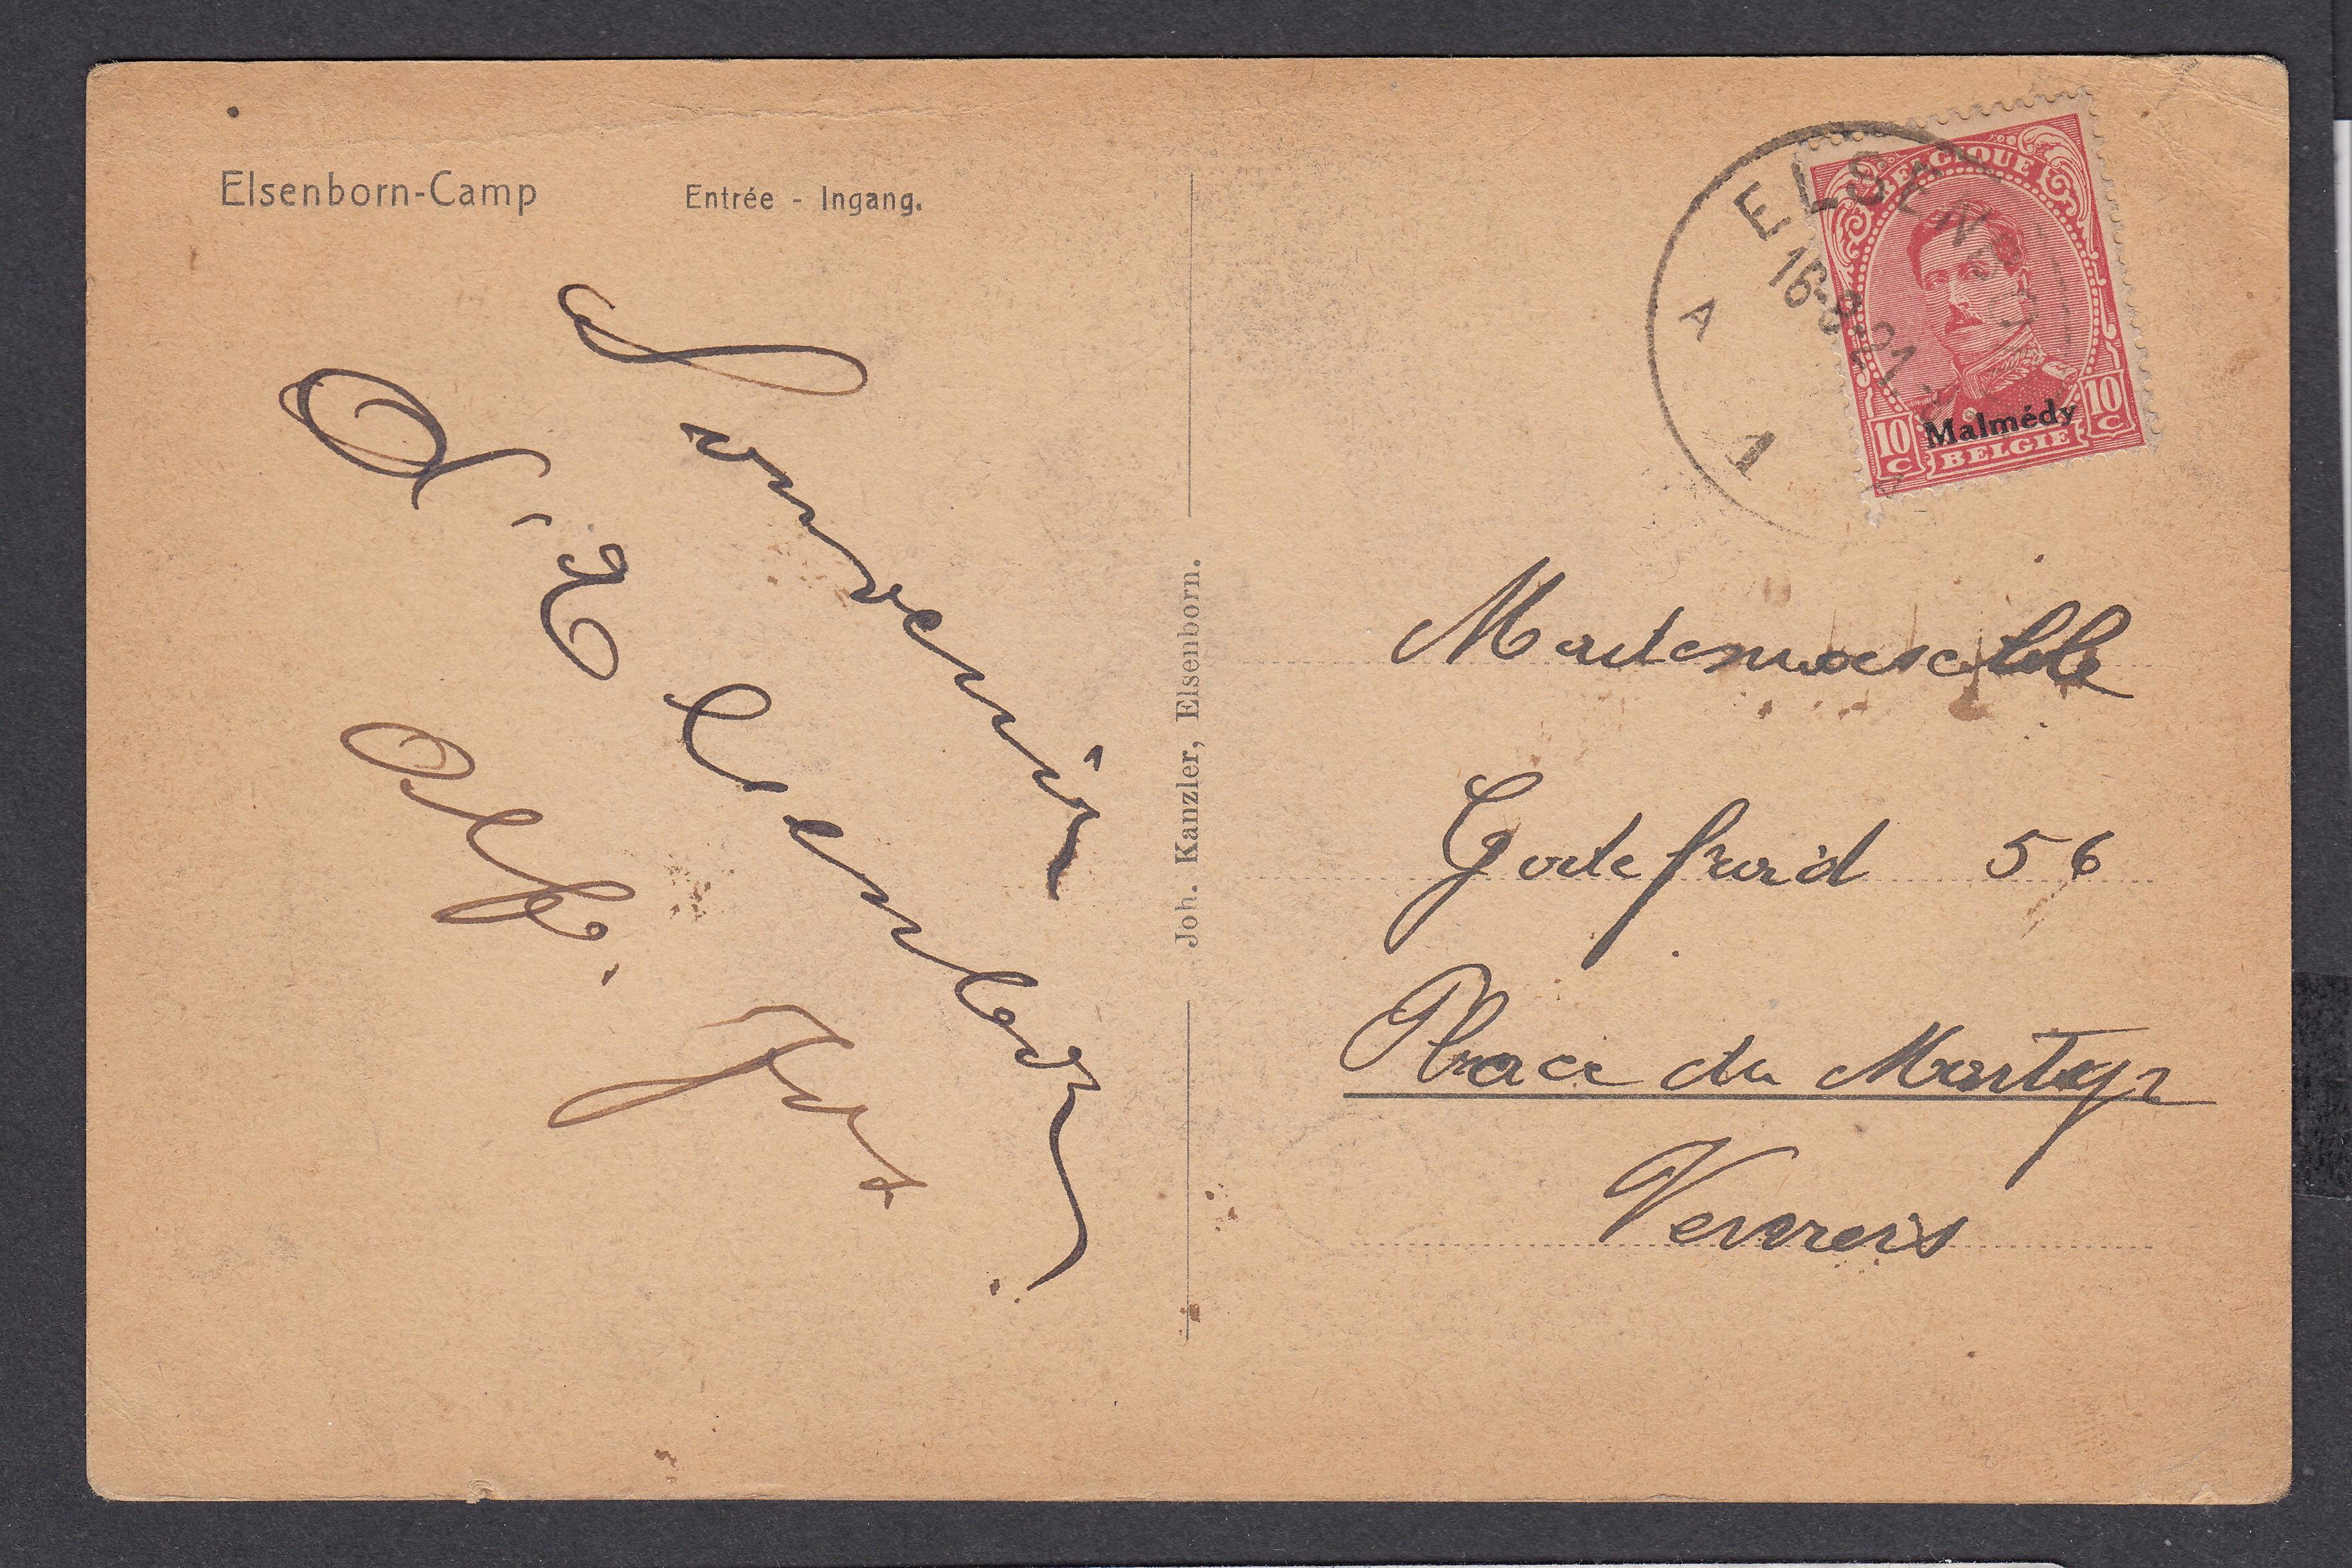 Elsenborn-Camp Entrée - Ingang.
Souvenir
Joh. Kanzler, Elsenborn.
ELSENBO
16-8-21
A
1
BELGIQUE
Malmédy
10 C BELGIE 10 C
Mademoiselle
Godefroid 56
Place du Martyr
Verviers